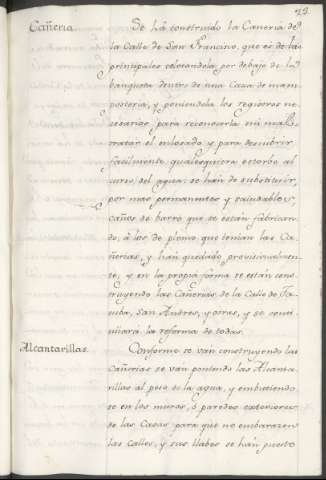 Cañeria
Se há construido la Cañeria de
la Calle de San Francisco, que es de las
principales colocandola por debajo de la
banqueta dentro de una Caxa de mam
posteria, y poniendola los registros ne
cesarios para reconocerla sin mal
tratar el enlosado y para descubrir
facilmente qualesquiera estorbo al
curso del agua: se han de substituir,
por mas permanentes y saludables,
caños de barro que se están fabrican
do, á los de plomo que tenian las Ca
ñerias, y han quedado provisionalmen
te, y en la propia forma se están cons
truyendo las Cañerias de la Calle de Ta
cuba, San Andres, y otras, y se conti
nuará la reforma de todas.
Alcantarillas.
Conforme se van construyendo las
Cañerias se van poniendo las Alcanta
rillas al peso de la agua, y embutiendo
se en los muros, ó paredes exteriores
de las Casas para que no embarazen
las calles, y sus llabes se han puesto